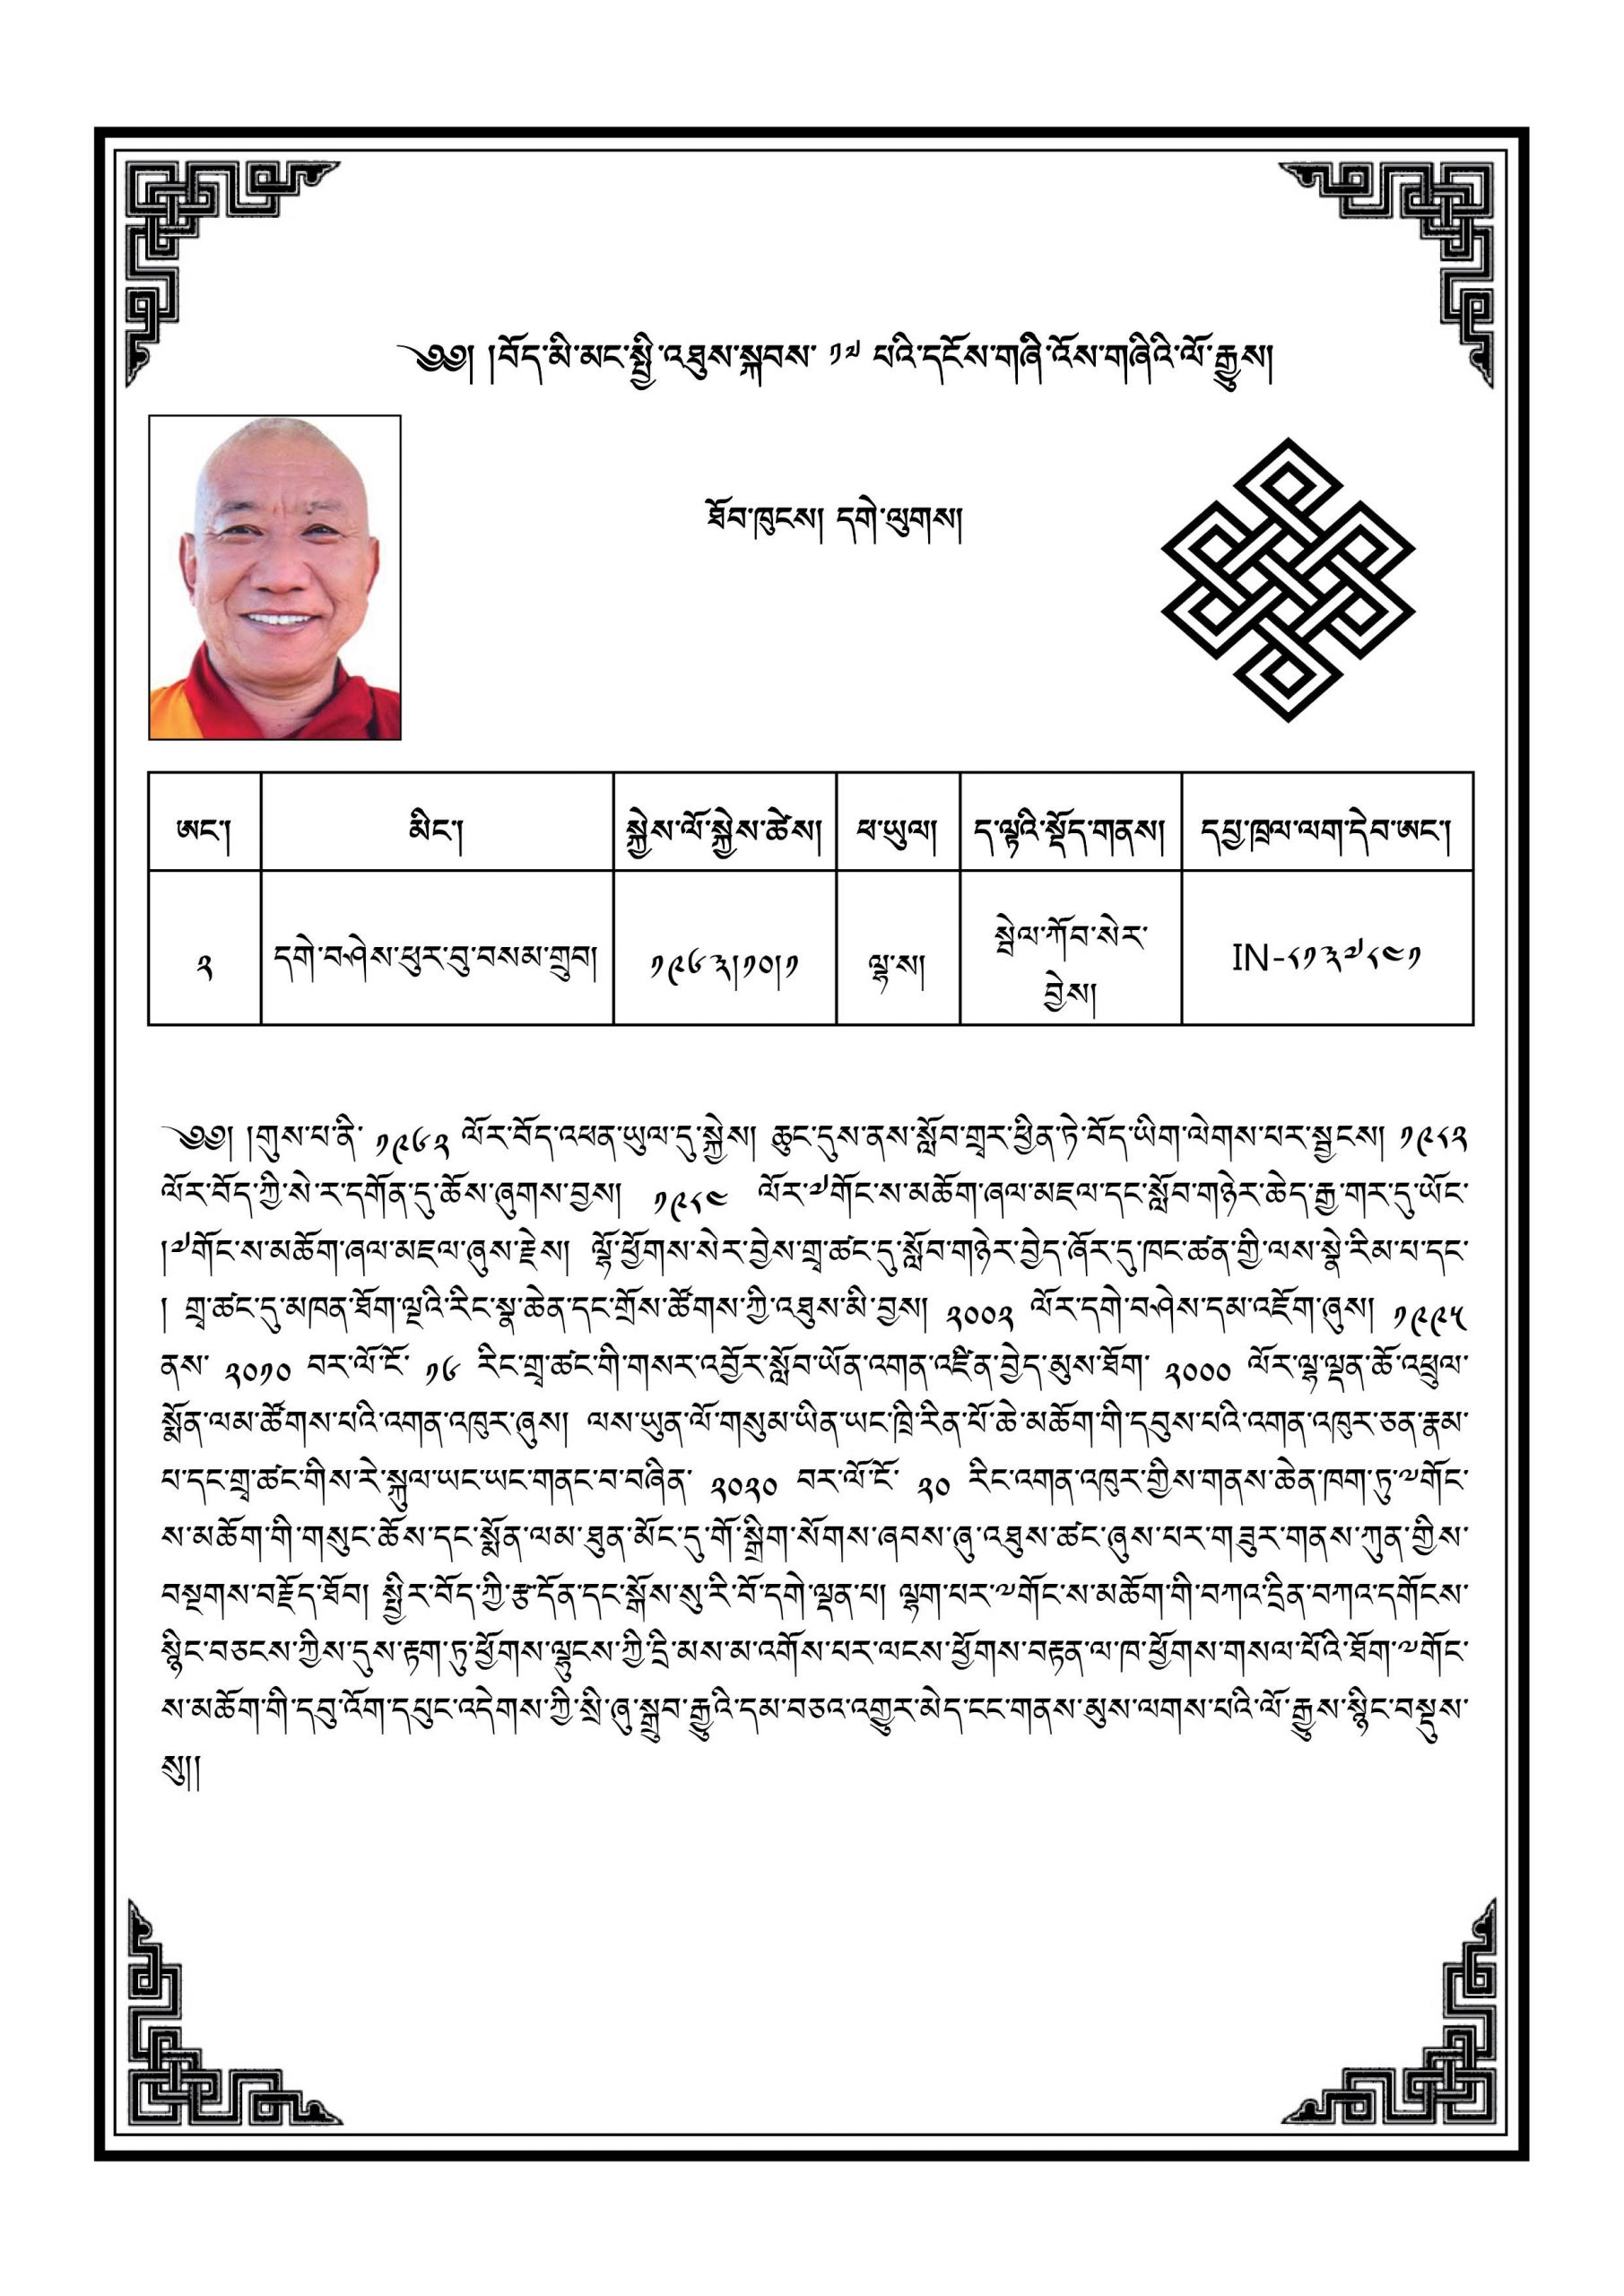 ༄༅། །བོད་མི་མང་སྤྱི་འཐུས་སྐབས་ ༡༧ པའི་དངོས་གཞི་འོས་གཞིའི་ལོ་རྒྱུས།
ཐོབ་ཁུངས། དགེ་ལུགས།
ཨང་། མིང་། སྐྱེས་ལོ་སྐྱེས་ཚེས། ཕ་ཡུལ། ད་ལྟའི་སྡོད་གནས། དཔྱ་ཁྲལ་ལག་དེབ་ཨང་།
༢ དགེ་བཤེས་ཕུར་བུ་བསམ་གྲུབ། ༡༩༦༣།༡༠།༡ ལྷ་ས། སྦེལ་ཀོབ་སེར་
བྱེས། IN-༨༡༣༧༨༤༡
༄༅། །གུས་པ་ནི་ ༡༩༦༢ ལོར་བོད་འཕན་ཡུལ་དུ་སྐྱེས། ཆུང་དུས་ནས་སློབ་གྲྭར་ཕྱིན་ཏེ་བོད་ཡིག་ལེགས་པར་སྦྱངས། ༡༩༨༢
ལོར་བོད་ཀྱི་སེ་ར་དགོན་དུ་ཆོས་ཞུགས་བྱས། ༡༩༨༤ ལོར་༧གོང་ས་མཆོག་ཞལ་མཇལ་དང་སློབ་གཉེར་ཆེད་རྒྱ་གར་དུ་ཡོང་
།༧གོང་ས་མཆོག་ཞལ་མཇལ་ཞུས་རྗེས། ལྷོ་ཕྱོགས་སེར་བྱེས་གྲྭ་ཚང་དུ་སློབ་གཉེར་བྱེད་ཞོར་དུ་ཁང་ཚན་གྱི་ལས་སྣེ་རིམ་པ་དང་
། གྲྭ་ཚང་དུ་མཁན་ཐོག་ལྔའི་རིང་སྣ་ཆེན་དང་གྲོས་ཚོགས་ཀྱི་འཐུས་མི་བྱས། ༢༠༠༢ ལོར་དགེ་བཤེས་དམ་འཇོག་ཞུས། ༡༩༩༥
ནས་ ༢༠༡༠ བར་ལོ་ངོ་ ༡༦ རིང་གྲྭ་ཚང་གི་གསར་འབྱོར་སློབ་ཡོན་འགན་འཛིན་བྱེད་མུས་ཐོག་ ༢༠༠༠ ལོར་ལྷ་ལྡན་ཆོ་འཕྲུལ་
སྨོན་ལམ་ཚོགས་པའི་འགན་འཁུར་ཞུས། ལས་ཡུན་ལོ་གསུམ་ཡིན་ཡང་ཁྲི་རིན་པོ་ཆེ་མཆོག་གི་དབུས་པའི་འགན་འཁུར་ཅན་རྣམ་
པ་དང་གྲྭ་ཚང་གིས་རེ་སྐུལ་ཡང་ཡང་གནང་བ་བཞིན་ ༢༠༢༠ བར་ལོ་ངོ་ ༢༠ རིང་འགན་འཁུར་གྱིས་གནས་ཆེན་ཁག་ཏུ་༧གོང་
ས་མཆོག་གི་གསུང་ཆོས་དང་སྨོན་ལམ་ཐུན་མོང་དུ་གོ་སྒྲིག་སོགས་ཞབས་ཞུ་འཐུས་ཚང་ཞུས་པར་གཟུར་གནས་ཀུན་གྱིས་
བསྔགས་བརྗོད་ཐོབ། སྤྱིར་བོད་ཀྱི་རྩ་དོན་དང་སྒོས་སུ་རི་བོ་དགེ་ལྡན་པ། ལྷག་པར་༧གོང་ས་མཆོག་གི་བཀའ་དྲིན་བཀའ་དགོངས་
སྙིང་བཅངས་ཀྱིས་དུས་རྟག་ཏུ་ཕྱོགས་ལྷུངས་ཀྱི་དྲི་མས་མ་འགོས་པར་ལངས་ཕྱོགས་བརྟན་ལ་ཁ་ཕྱོགས་གསལ་པོའི་ཐོག་༧གོང་
ས་མཆོག་གི་དབུ་འོག་དཔུང་འདེགས་ཀྱི་སྲི་ཞུ་སྒྲུབ་རྒྱུའི་དམ་བཅའ་འགྱུར་མེད་ངང་གནས་མུས་ལགས་པའི་ལོ་རྒྱུས་སྙིང་བསྡུས་
སུ།།